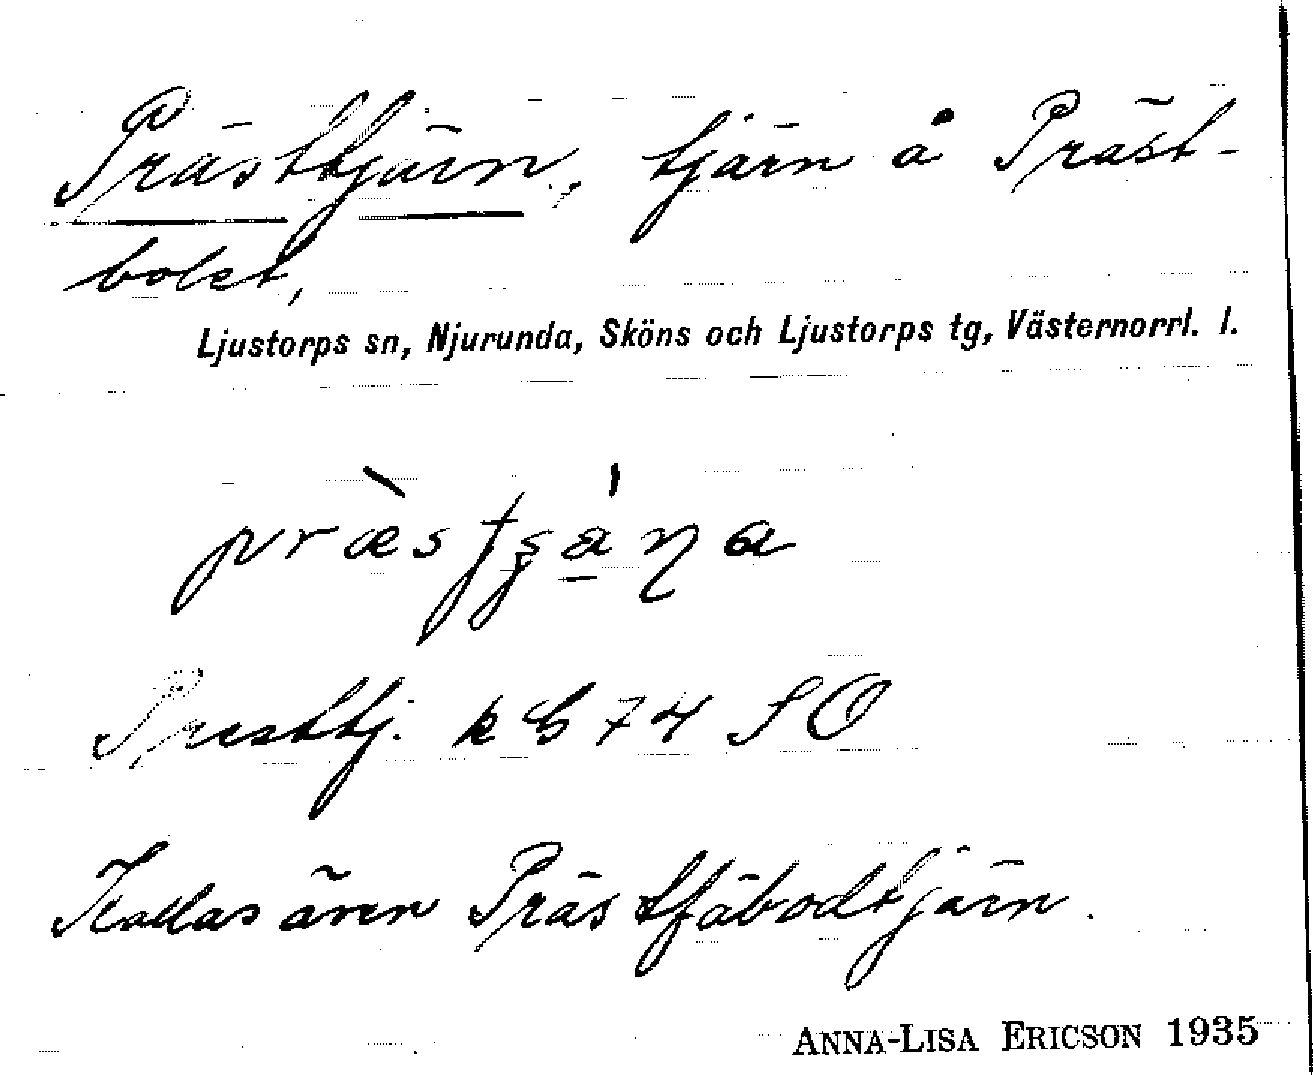 Prästtjärn, tjärn å Präst-
bolet,
Ljustorps sn, Njurunda, Sköns och Ljustorps tg, Västernorrl. l.
Presttj. k G 74 SO
Kallas även Prästfäbodtjärn.
ANNA-LISA ERICSON 1935